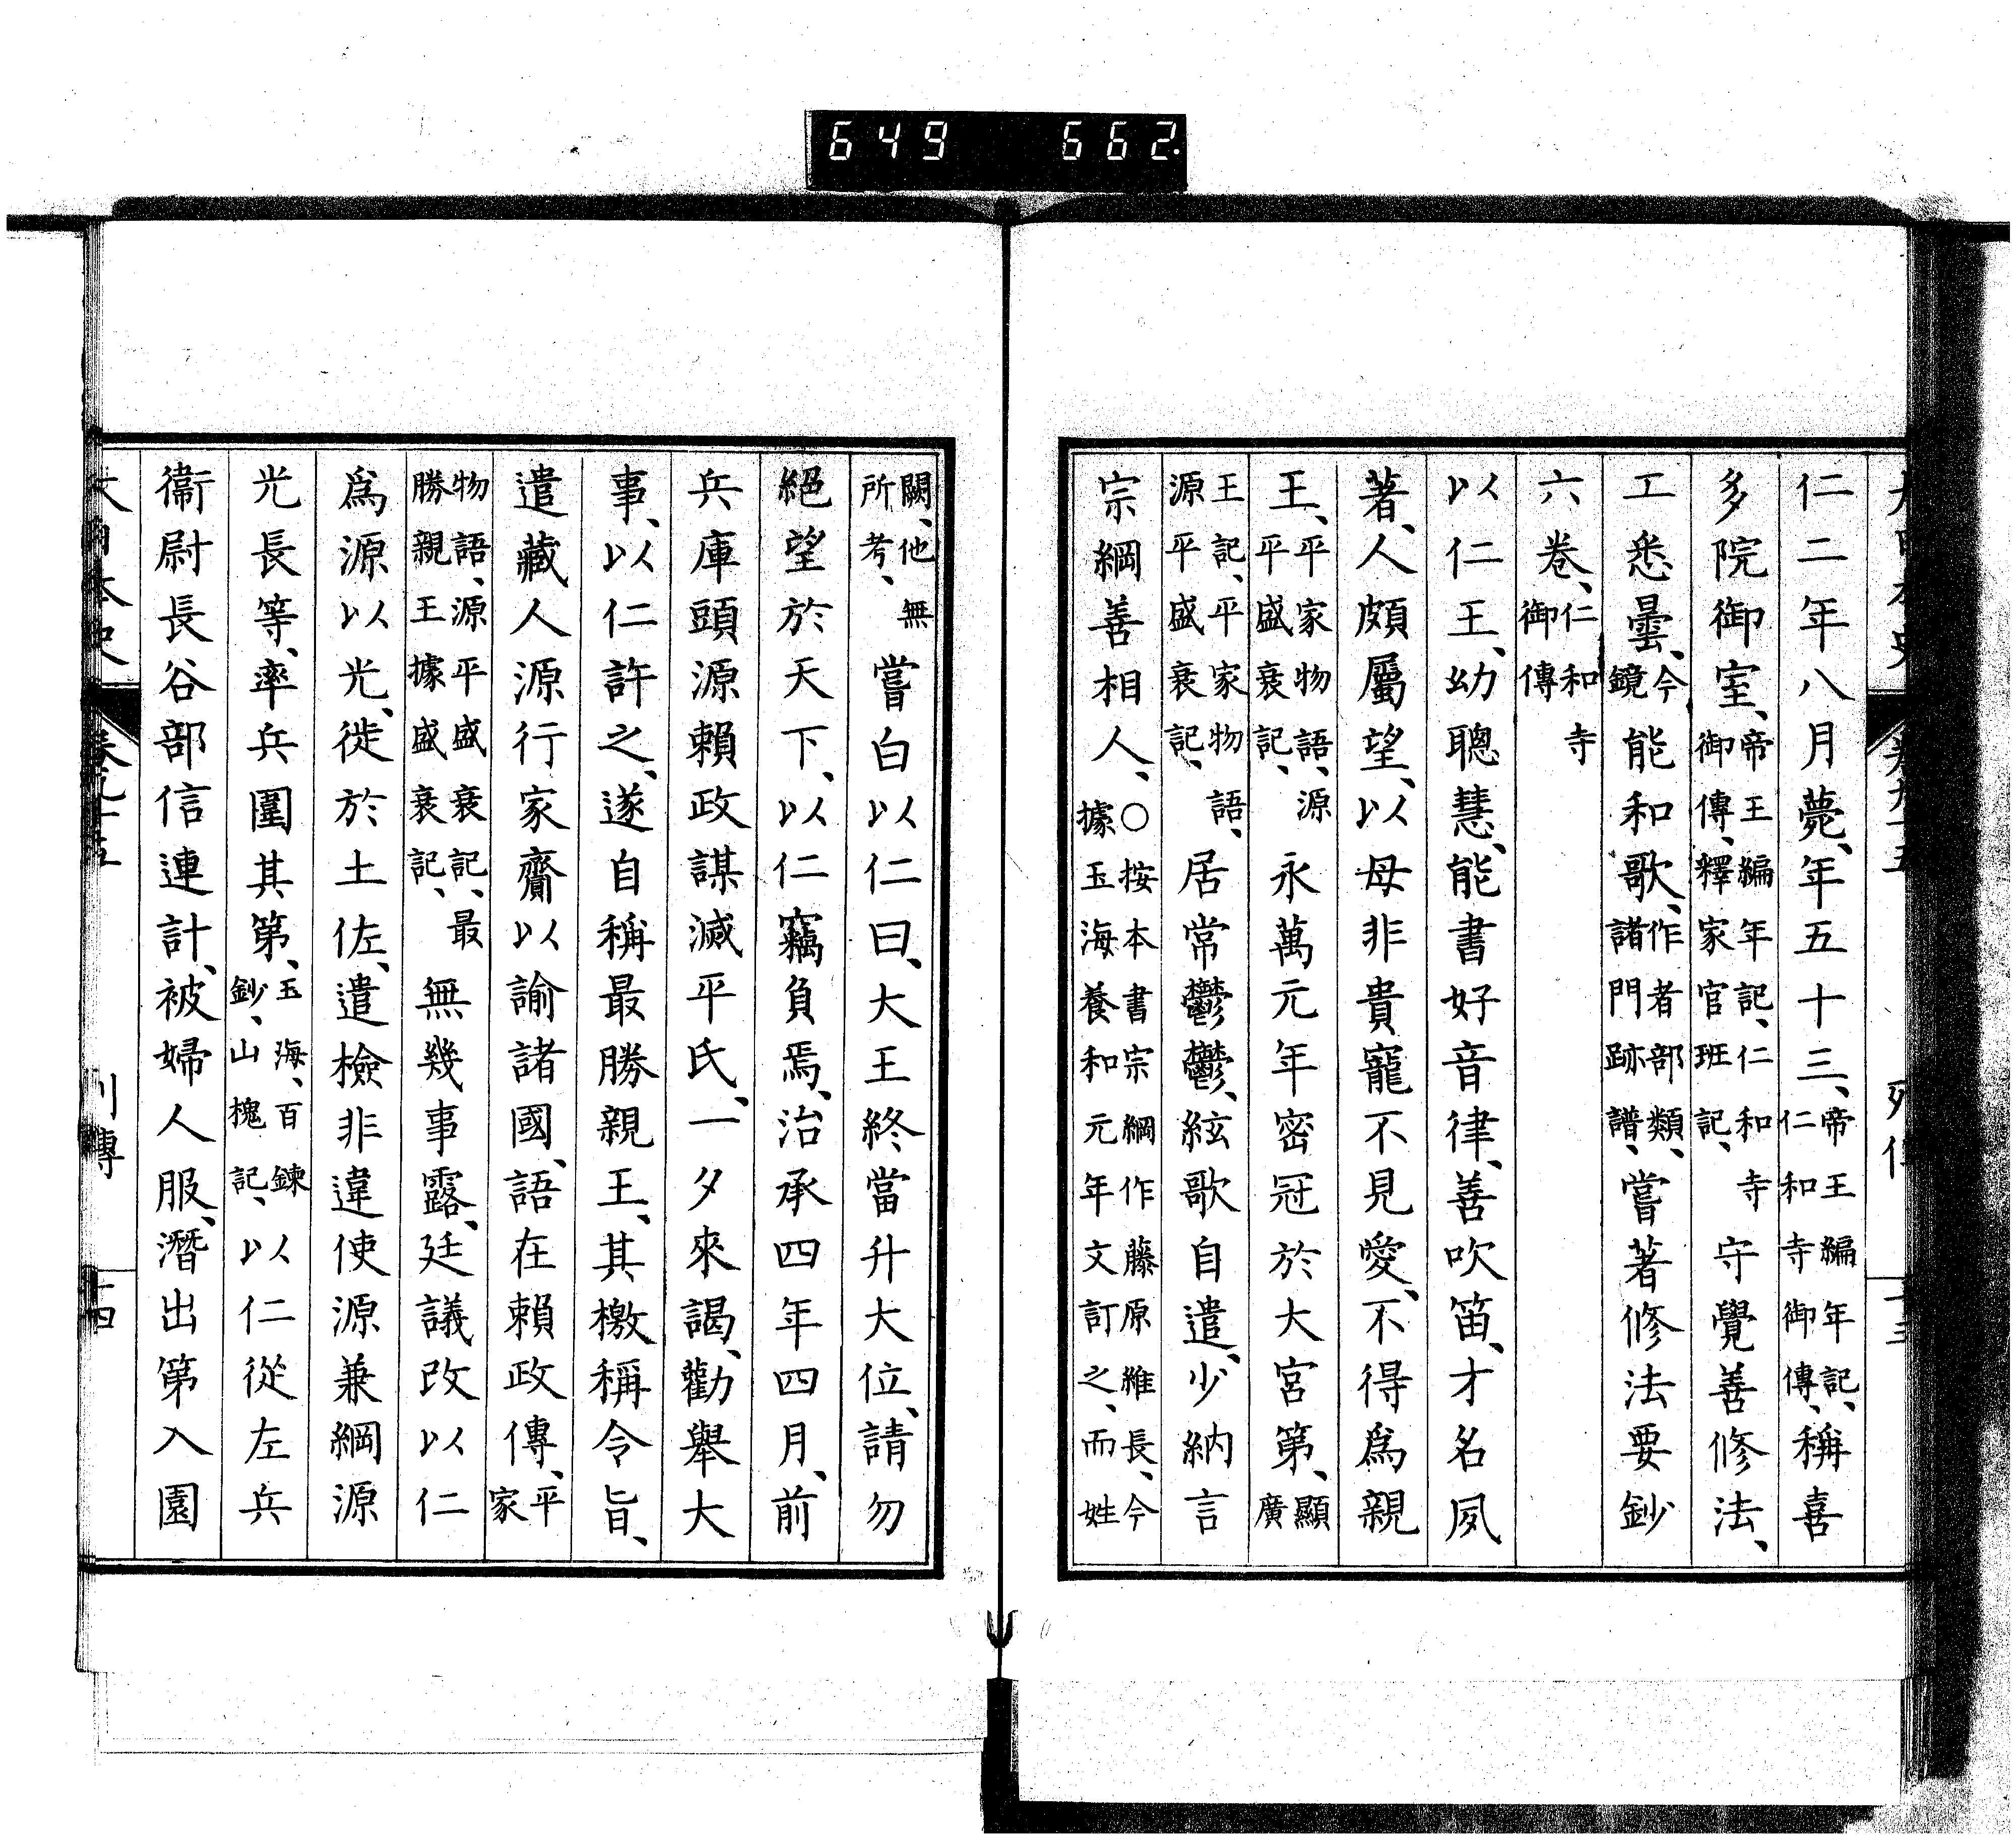 649 662.
仁二年八月薨、年五十三、帝王編年記、仁和寺御傳、稱喜
多院御室、帝王編年記、仁和寺御傳、釋家官班記、守覺善修法、
工悉曇、今鏡能和歌、作者部類、諸門跡譜、嘗著修法要鈔
六卷、仁和寺御傳
以仁王、幼聰慧、能書好音律、善吹笛、才名夙
著、人頗屬望、以母非貴寵不見愛、不得爲親
王、平家物語、源平盛衰記、永萬元年密冠於大宮第、顯廣
王記、平家物語、源平盛衰記、居常鬱鬱、絃歌自遣、少納言
宗綱善相人、○按本書宗綱作藤原維長、今據玉海養和元年文訂之、而姓
闕、他無所考、嘗白以仁曰、大王終當升大位、請勿
絕望於天下、以仁竊負焉、治承四年四月、前
兵庫頭源賴政謀滅平氏、一夕來謁、勸舉大
事、以仁許之、遂自稱最勝親王、其檄稱令旨、
遣藏人源行家齎以諭諸國、語在賴政傳、平家
物語、源平盛衰記、最勝親王據盛衰記、無幾事露、廷議改以仁
爲源以光、徙於土佐、遣檢非違使源兼綱源
光長等、率兵圍其第、玉海、百鍊鈔、山槐記、以仁從左兵
衞尉長谷部信連計、被婦人服、潛出第入園
大日本史 卷九十五 列傳 十四